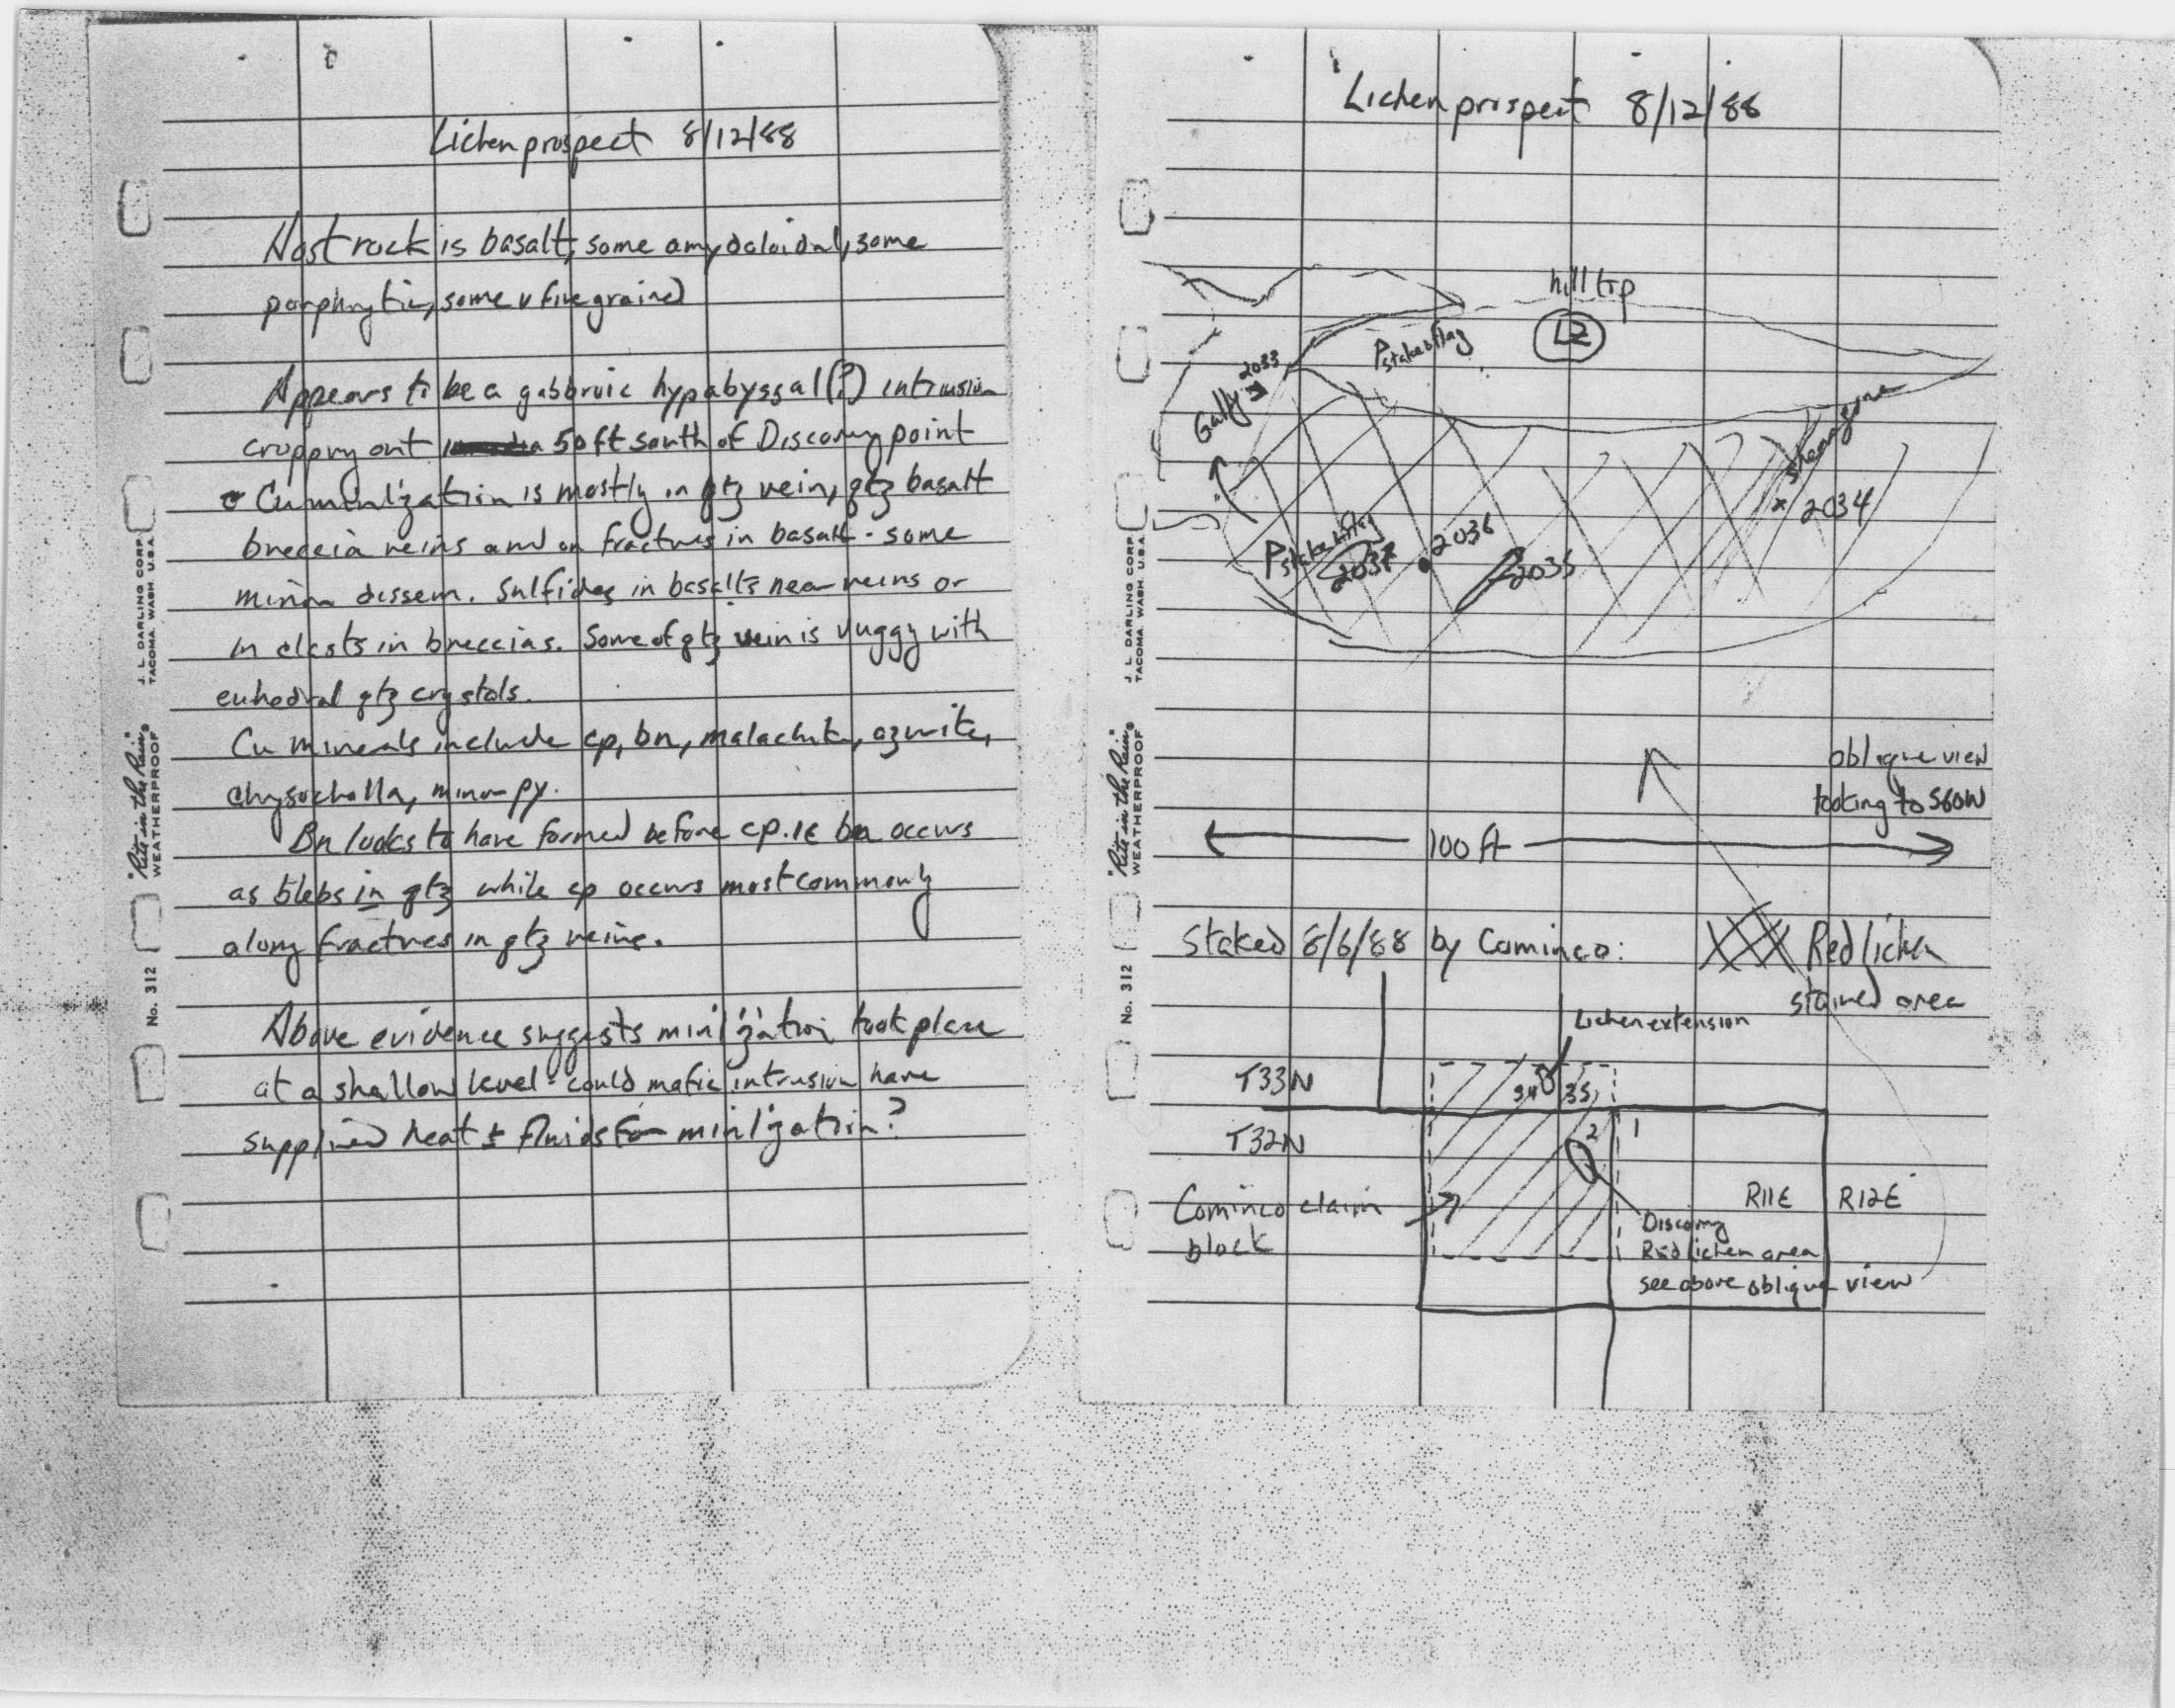 Lichen prospect 8/12/88
Host rock is basalt, some amydaloidal, some
porphrytic, some v fine grained
Appears to be a gabbroic hypabyssal (?) intrusion
croppng out 50 ft south of Discovery point
Cu minlization is mostly in qtz vein, qtz basalt
breccia veins and on fractures in basalt - some
minor dissem. sulfides in basalts near veins or
in clasts in breccias. Some of qtz vein is vuggy with
euhedral qtz crystals.
Cu minerals include cp, bn, malachite, azurite,
chrysocholla, minor py.
Bn looks to have formed before cp. ie bn occurs
as blebs in qtz while cp occurs most commonly
along fractures in qtz veins.
Above evidence suggests minlization took place
at a shallow level - could mafic intrusion have
supplied heat ± fluids for minlization?
J. L. DARLING CORP.
TACOMA, WASH. U.S.A.
"Rite in the Rain"
WEATHERPROOF
No. 312
Lichen prospect 8/12/88
hill top
L2
P stake & flag
2033
Gully
shear zone
x 2034
P stake & flag
2037
2036
2035
oblique view
looking to S60W
100 ft
Staked 8/6/88 by Cominco:
Red lichen
stained area
Lichen extension
T33N
34 35
T32N
2 1
Cominco claim
block
R11E R12E
Discovery
Red lichen area
see above oblique view
J. L. DARLING CORP.
TACOMA, WASH. U.S.A.
"Rite in the Rain"
WEATHERPROOF
No. 312